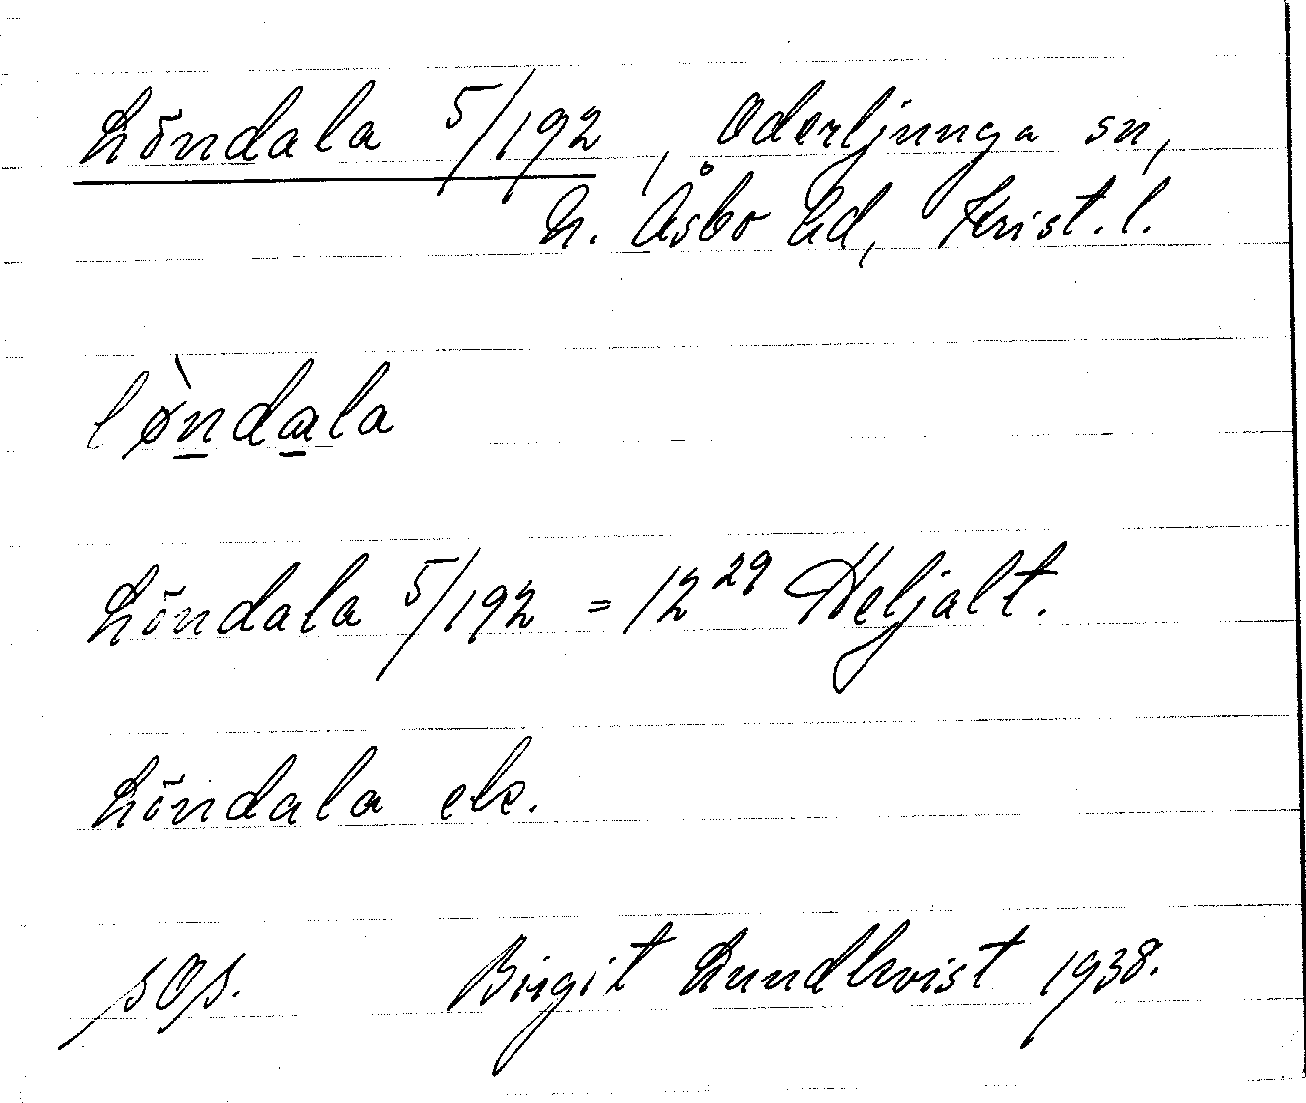 Löndala 5/192, Oderljunga sn,
N. Åsbo hd, Krist. l.
lø̀ndala
Löndala 5/192 = 12²⁹ Heljalt.
Löndala ek.
sOs. Birgit Lundkvist 1938.